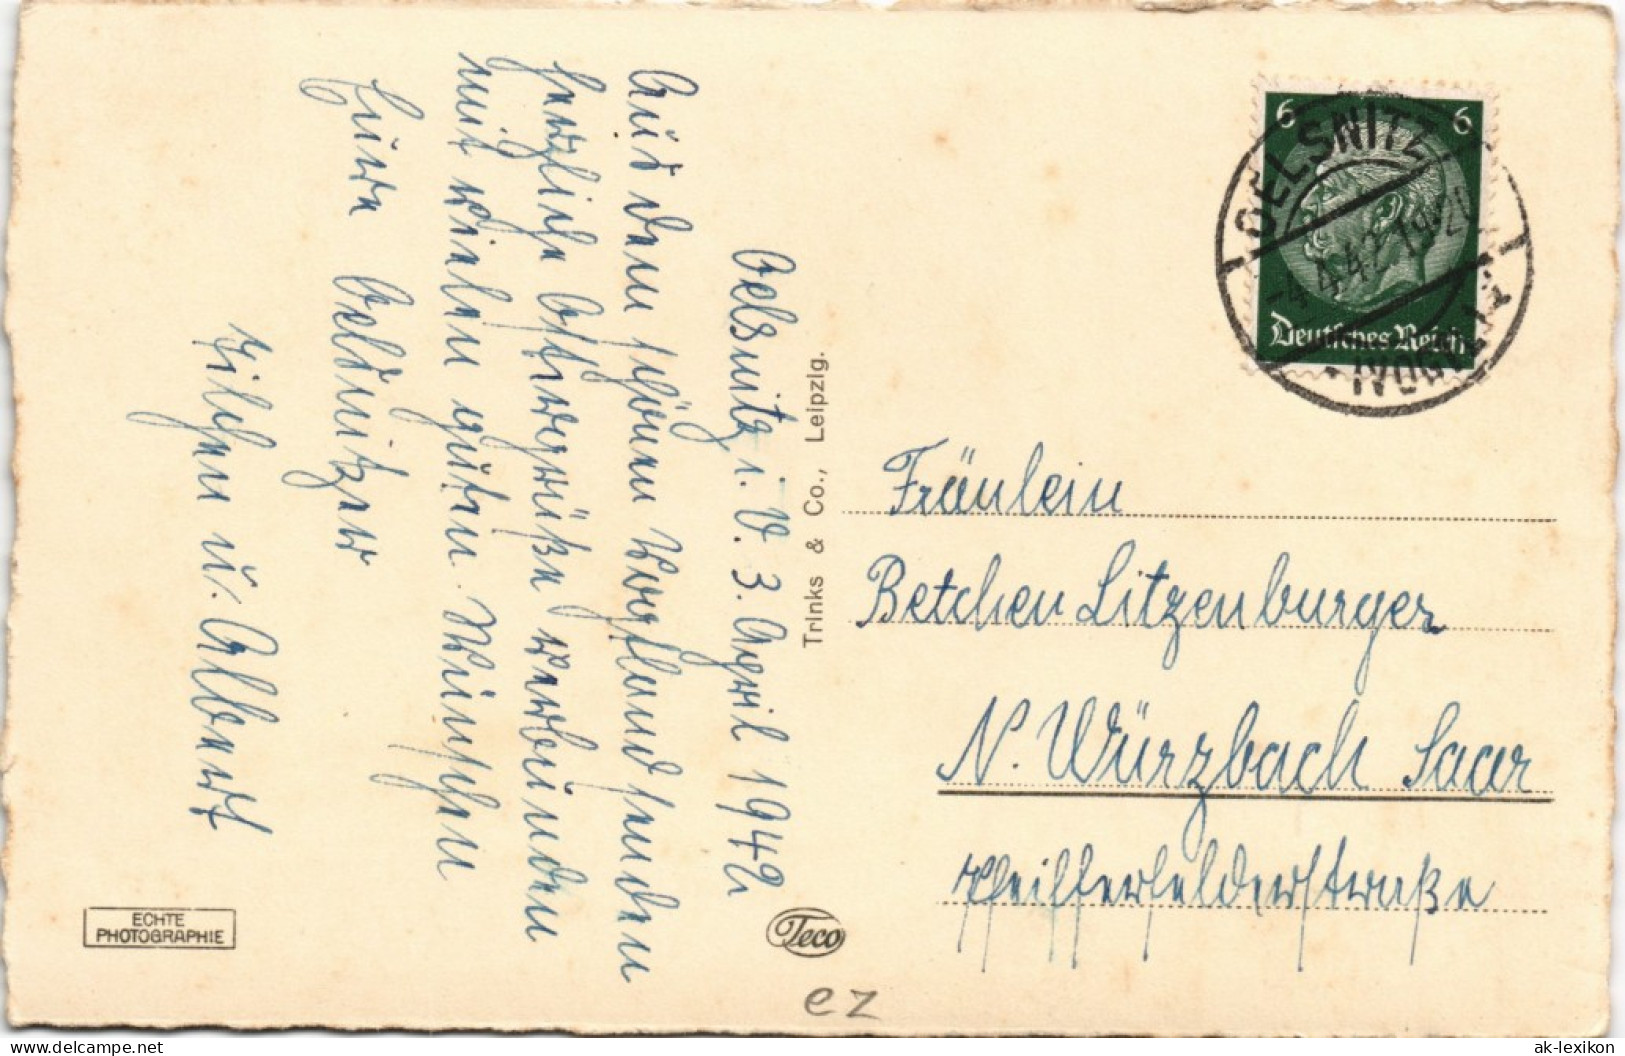 Oelsnitz i. V. 3. April 1942
Aus dem schönen Vogtland senden
herzliche Ostergrüße verbunden
mit vielen guten Wünschen
Eure Oelsnitzer
u. Albert
Trinks & Co., Leipzig.
6 6
Deutsches Reich
OELSNITZ
-4.4.42.19-20
(VOGTL)
Fräulein
Betchen Litzenburger
N. Würzbach Saar
Pfeifferfelderstraße
ECHTE
PHOTOGRAPHIE
Teco
ez
www.delcampe.net
ak-lexikon